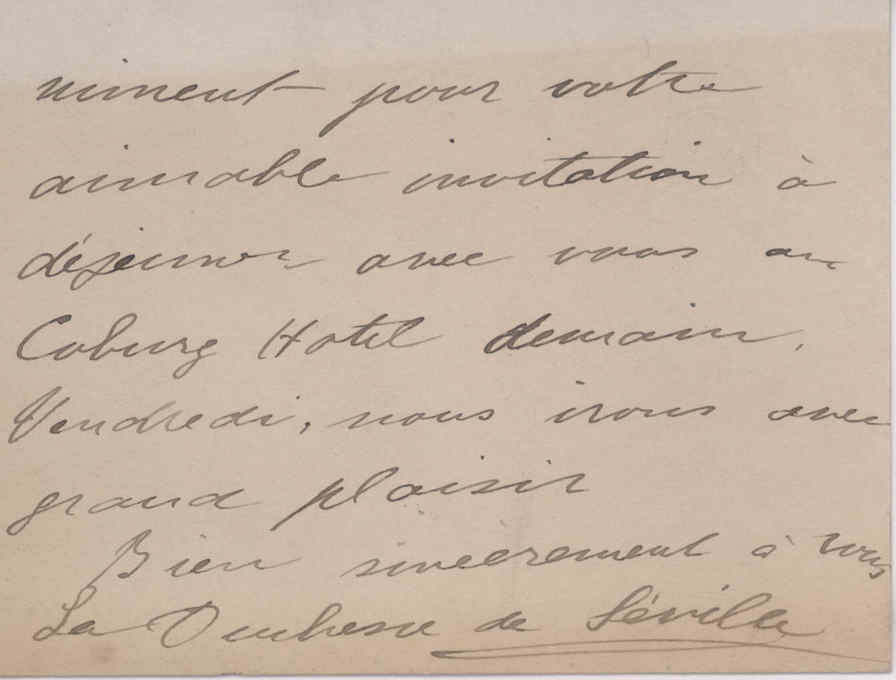 niment pour votre
aimable invitation à
déjeuner avec vous au
Coburg Hotel demain,
Vendredi, nous irons avec
grand plaisir
Bien sincèrement à vous
La Duchesse de Séville